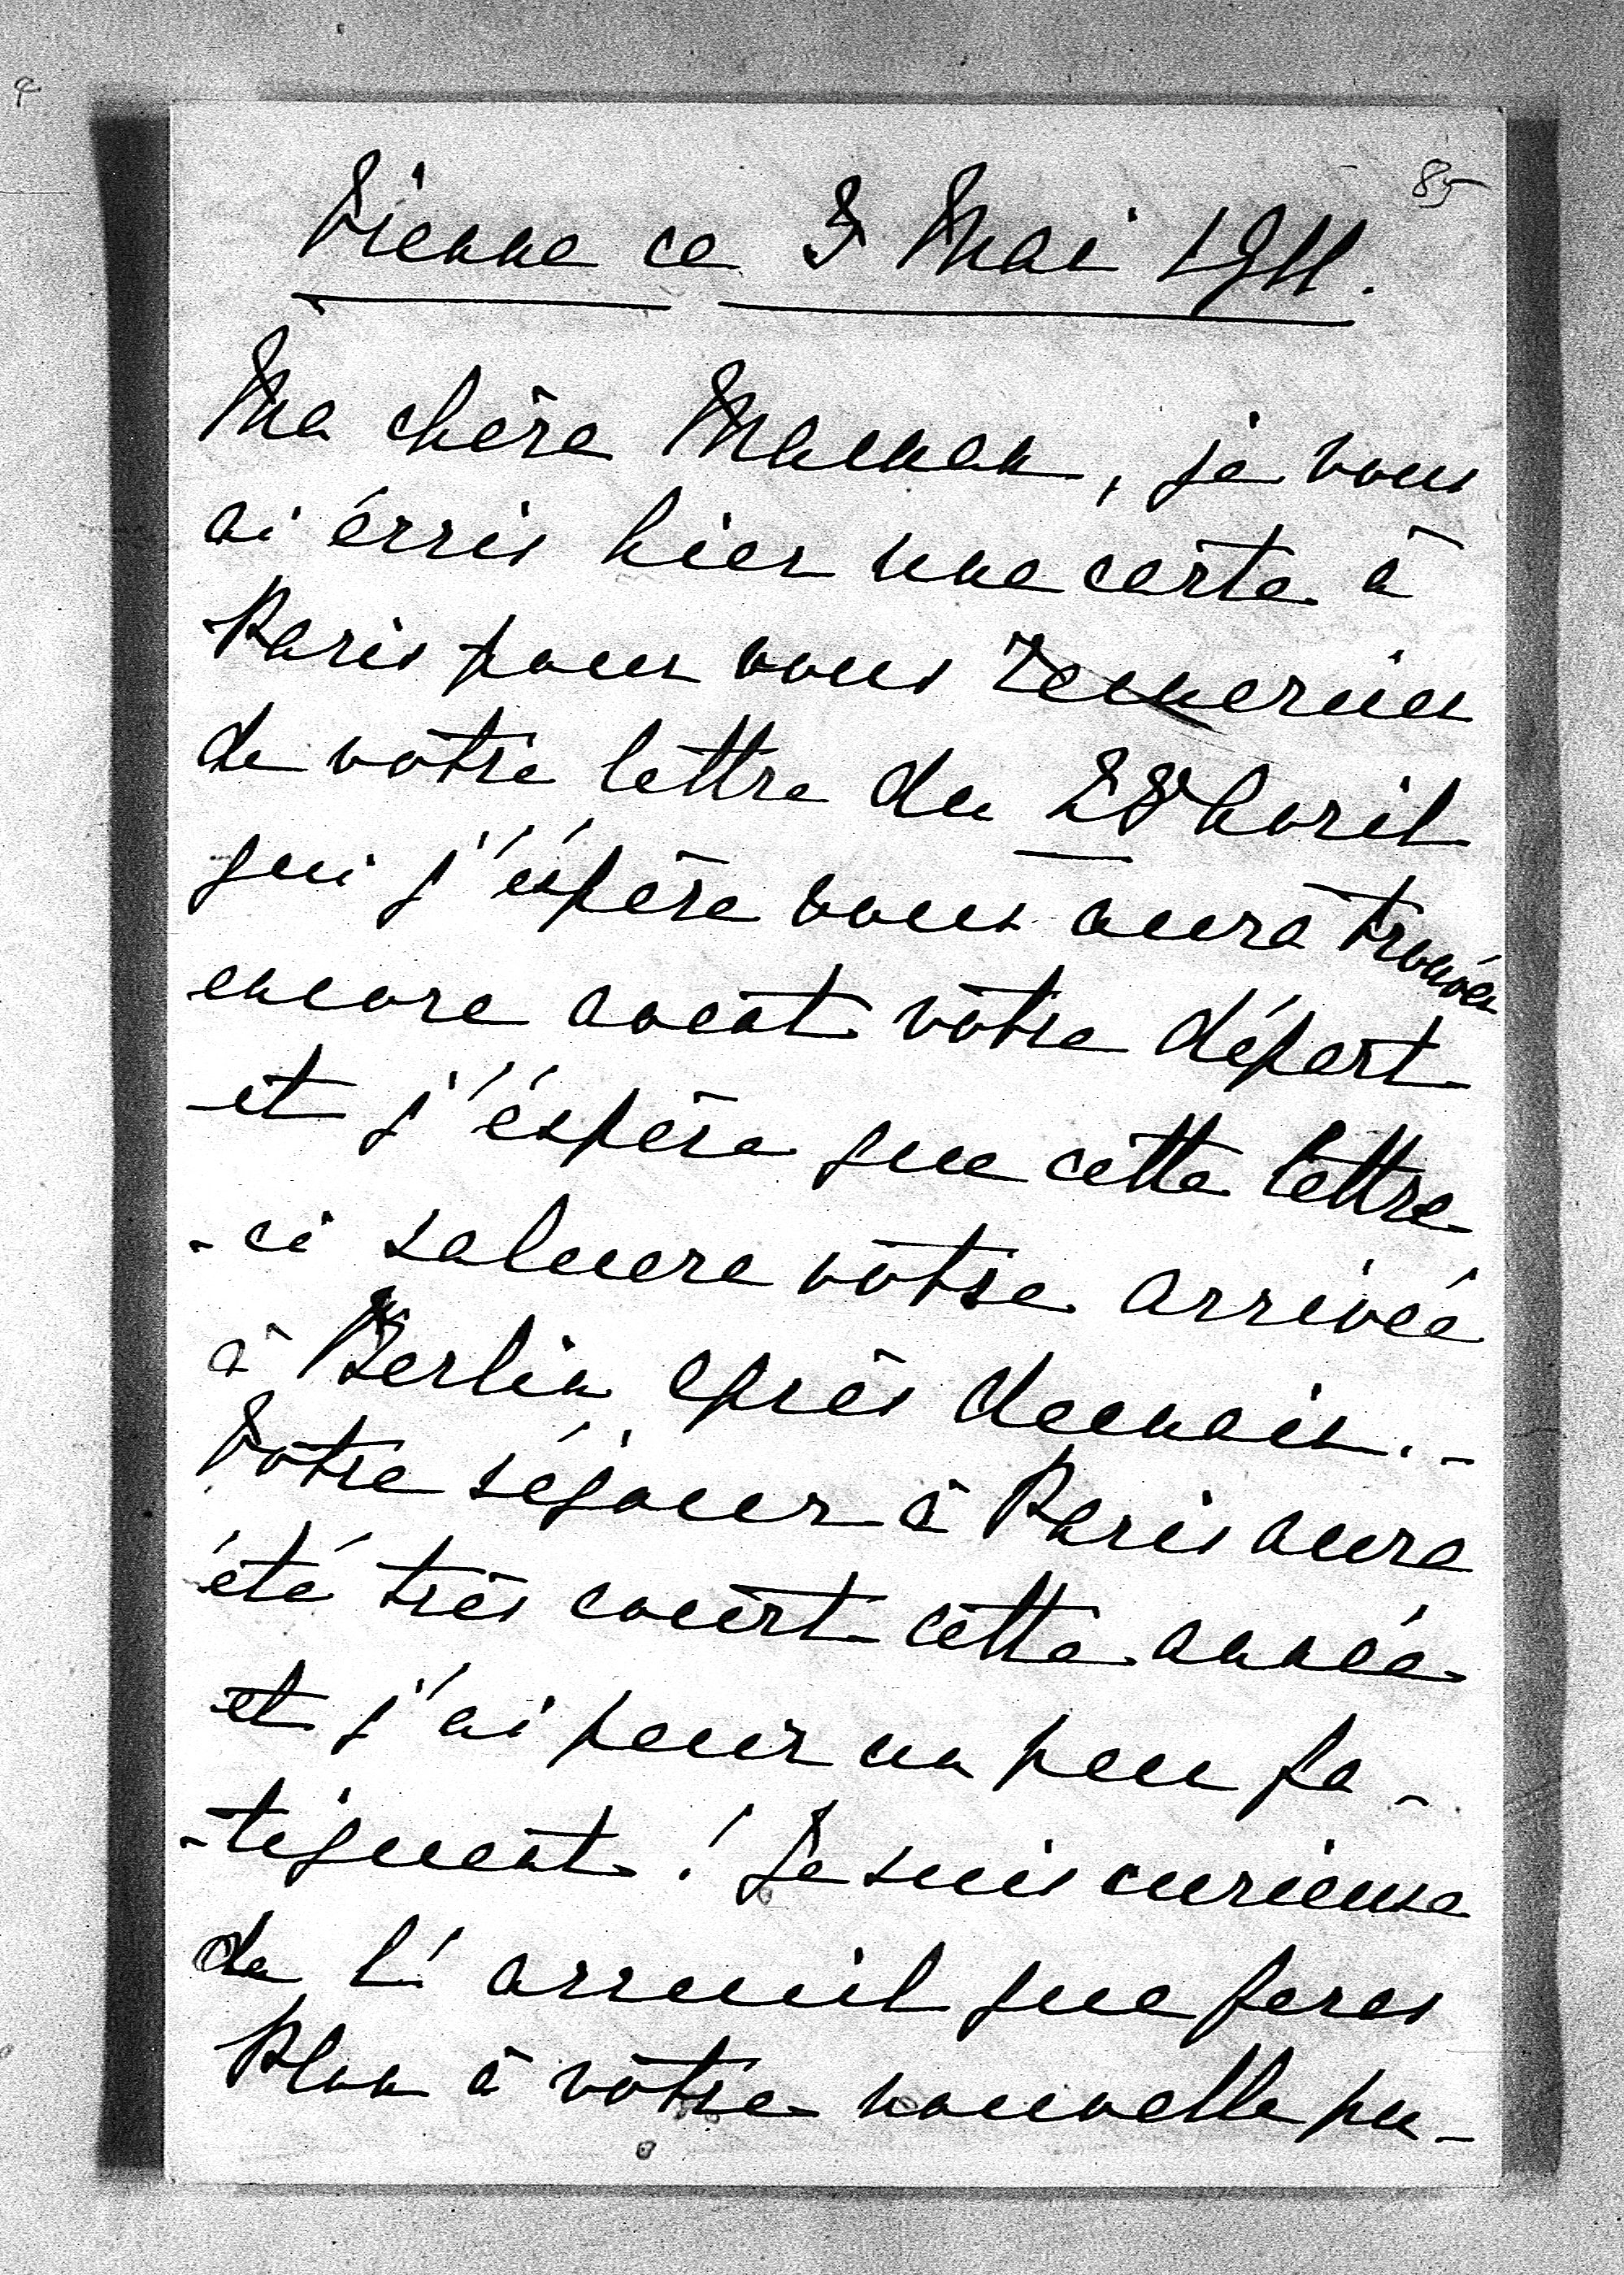 85
Vienne ce 3 Mai 1911.
Ma chère Maman, je vous
ai écris hier une carte à
Paris pour vous remercier
de vôtre lettre du 28 Avril
qui j'éspère vous aura trouvée
encore avant vôtre départ
et j'éspère que cette lettre
-ci saluera vôtre arrivée
à Berlin après demain. -
Vôtre séjour à Paris aura
été très court cette année
et j'ai peur un peu fa-
-tiguant! Je suis curieuse
de l'accueil que feras
Plon à vôtre nouvelle pu-